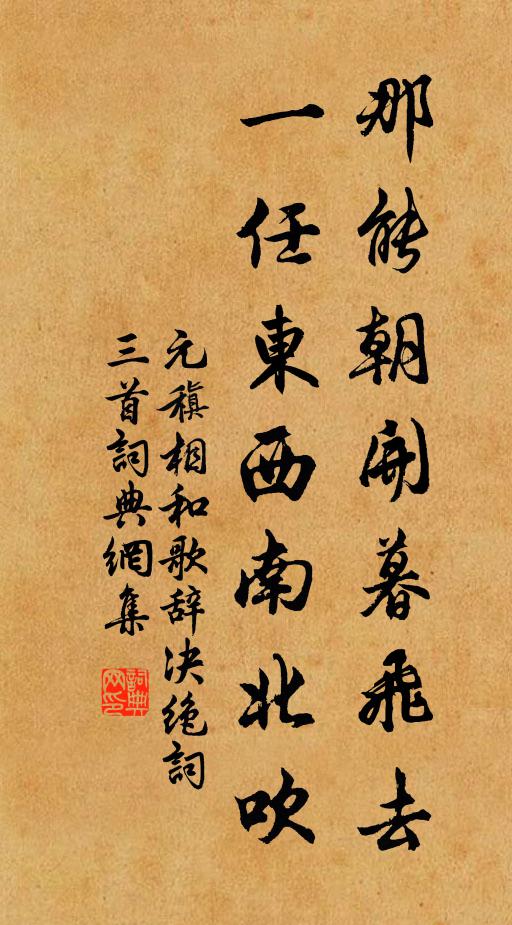 那能朝開暮飛去
一任東西南北吹
元稹相和歌辞決绝詞
三首詞典網集
詞典
网印